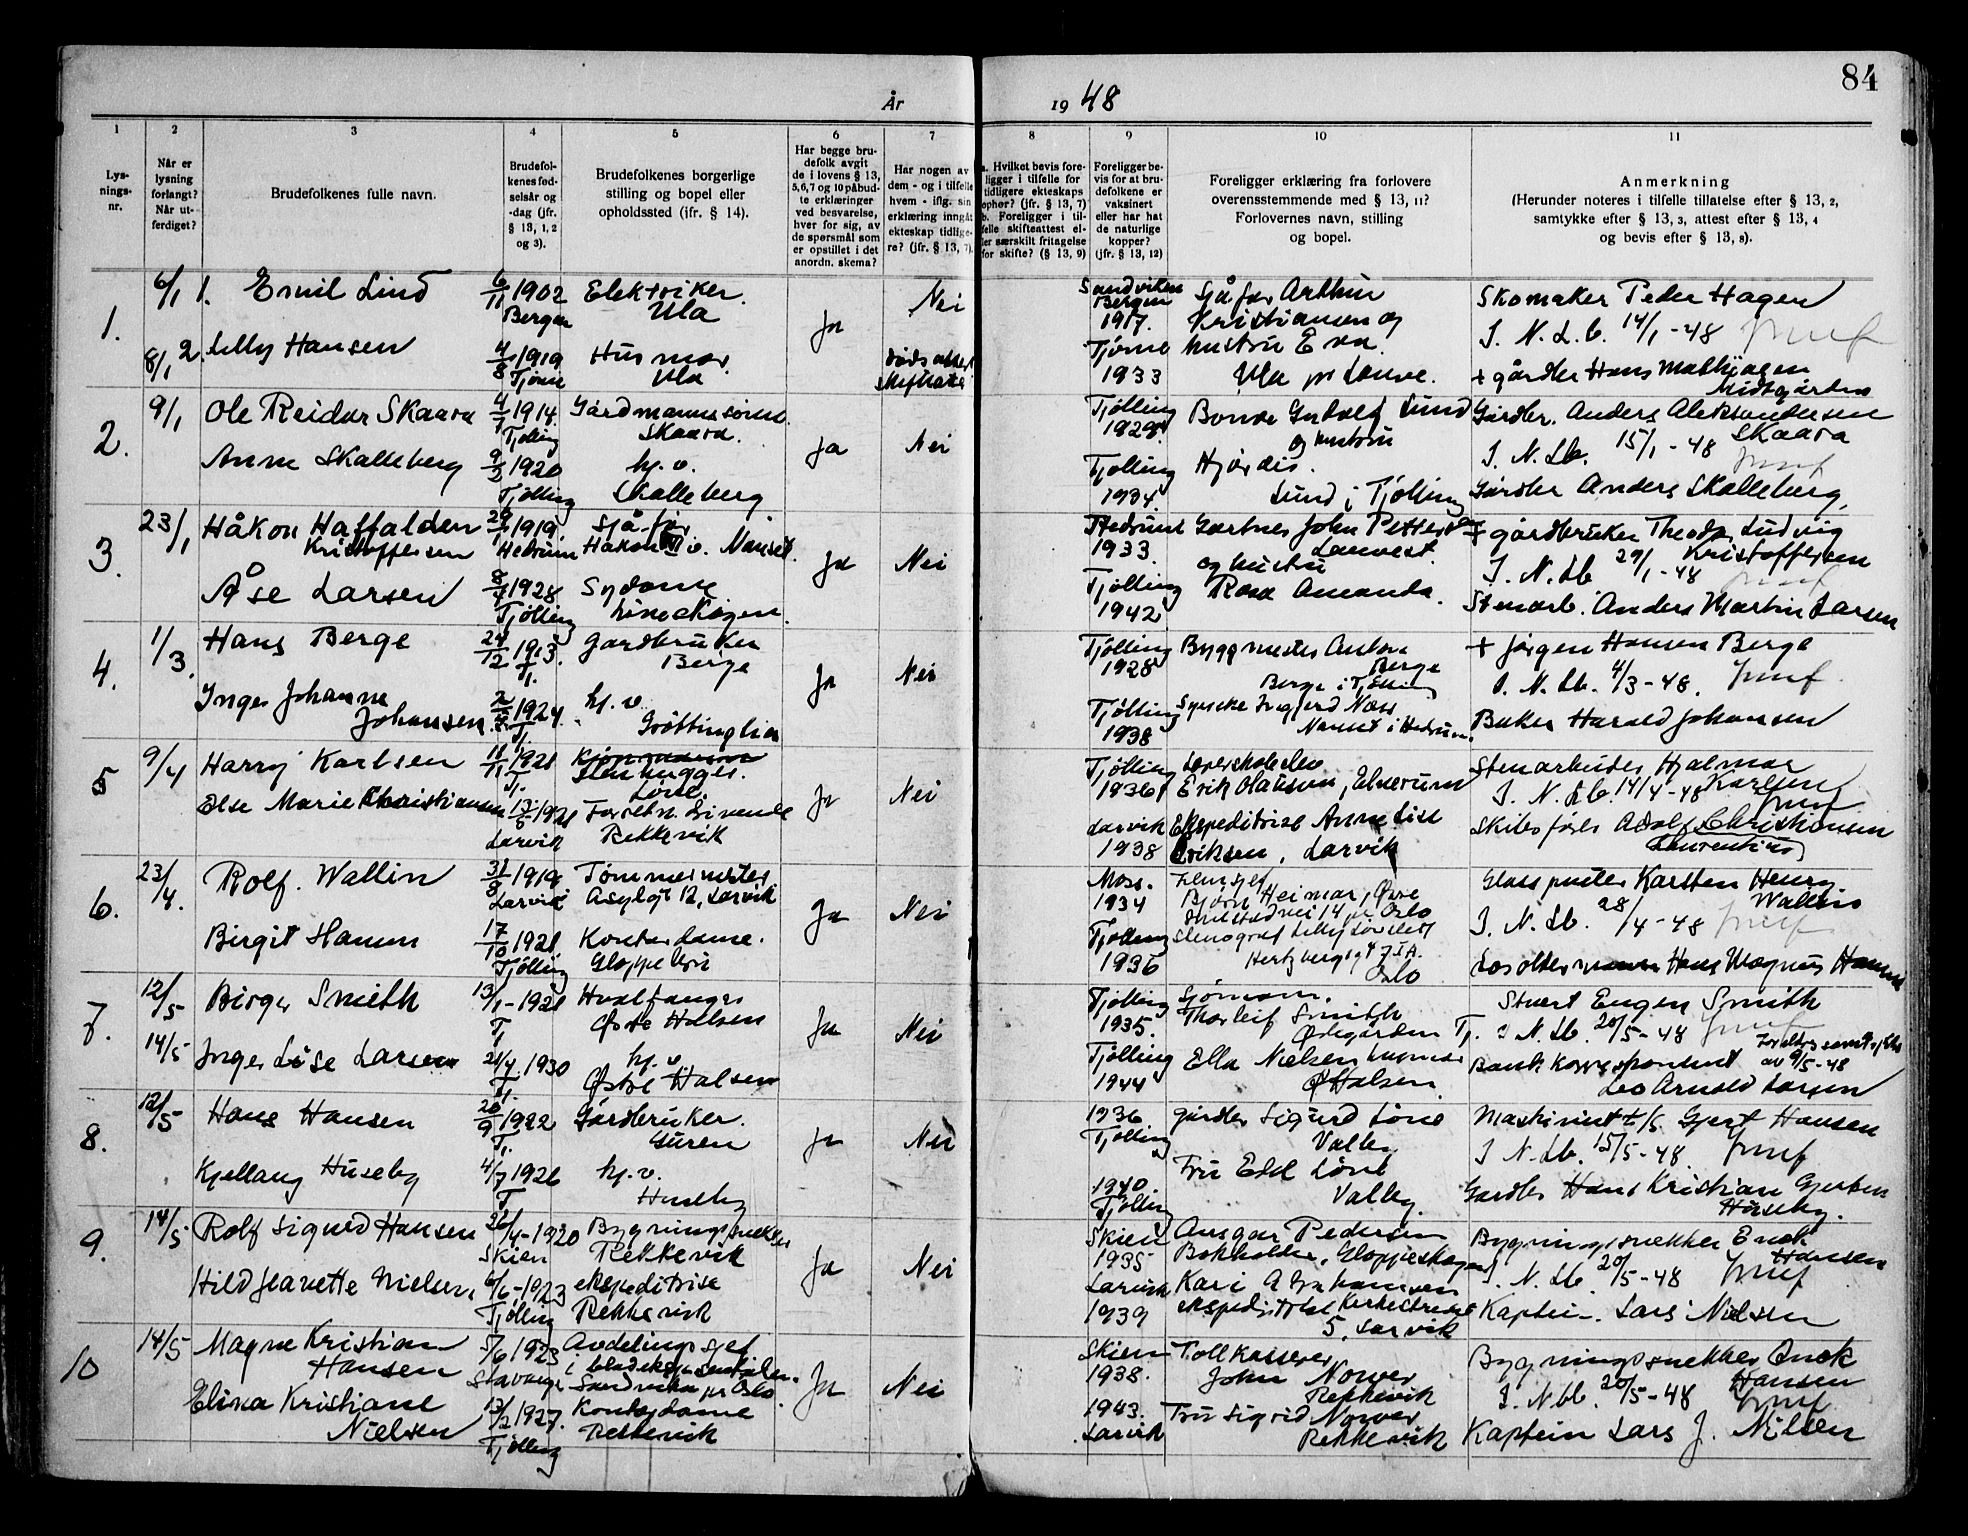 84
År 19 48
1
2
3
4
5
6
7
8
9
10
11
Lys-
nings-
nr.
Når er
lysning
forlangt?
Når ut-
ferdiget?
Brudefolkenes fulle navn.
Brudefol-
kenes fød-
selsår og
-dag (jfr.
§ 13, 1, 2
og 3).
Brudefolkenes borgerlige
stilling og bopel eller
opholdssted (ifr. § 14).
Har begge bru-
defolk avgit
de i lovens § 13,
5,6,7 og 10 påbud-
te erklæringer
ved besvarelse,
hver for sig, av
de spørsmål som
er opstillet i det
anordn. skema?
Har nogen av
dem - og i tilfelle
hvem - iflg. sin
erklæring inngåt
ekteskap tidlige-
re? (jfr. § 13, 7).
a. Hvilket bevis fore-
ligger i tilfelle for
tidligere ekteskaps
ophør? (jfr. § 13, 7)
b. Foreligger i til-
felle skifteattest el-
ler særskilt fritagelse
for skifte? (§ 13, 9)
Foreligger be-
vis for at bru-
defolkene er
vaksinert
eller har hat
de naturlige
kopper?
(jfr. § 13, 12)
Foreligger erklæring fra forlovere
overensstemmende med § 13, 11?
Forlovernes navn, stilling
og bopel.
Anmerkning
(Herunder noteres i tilfelle tillatelse efter § 13, 2,
samtykke efter § 13, 3, attest efter § 13, 4
og bevis efter § 13, 8).
1.
6/1 1. Emil Lind 6/11 1902 Elektriker.
Bergen Ula
Ja Nei
8/1 2. Lilly Hansen 4/8 1919 Husmor
Tjøme Ula
Sandviken
Bergen
1917.
Sjåfør Arthur
Kristiansen og
Tjøme hustru Eva.
1933 Ula pr Lauve.
Skomaker Peder Hagen
I. N. L. b. 14/1 - 48
+ gårdbr Hans Mathisen
Midtgården
2.
9/1 Ole Reidar Skaara 4/7 1914.
Tjølling Skaara.
Anne Skalleberg 9/2 1920 hj. v.
Tjølling Skalleberg
Ja Nei
Tjølling
1929.
Bonde Lund
og hustru
Tjølling Hjørdis.
1934. Lund i Tjølling
Gårdbr. Anders Aleksandersen
Skaara
I. N. Lb. 15/1 - 48
Gårdbr Anders Skalleberg.
3.
23/1 Håkon Haffalden 1919 Sjåfør
Kristoffersen Hedrum Nanset.
Åse Larsen 1928 Sydame
Tjølling
Ja Nei
Hedrum Gartner John Pettersen
1933. Lauvest.
og hustru
Tjølling Rosa Amanda.
1942
+ gårdbruker Theodor Ludvig
Kristoffersen
I. N. Lb 29/1 - 48
Stenarb. Anders Martin Larsen
4.
1/3. Hans Berge 24/12 1913. Gardbruker
Tj. Berge
Inger Johanne 1924. hj. v.
Johansen. Tj. Grøttinglia
Ja Nei
Tjølling Byggmester Anton
1928 Berge
Berge i Tjølling
Tjølling Syerske Ingjerd Næss
1938 Nanset i Hedrum.
+ Jørgen Hansen Berge
I. N. Lb. 4/3 - 48.
Baker Harald Johansen
5
9/4 Harry Karlsen 11/11 1921
Tj. Stenhugger.
Else Marie Christiansen 1921
Larvik Rekkevik
Ja Nei
Tjølling
1936 Erik Olaussen, Elverum
Larvik Ekspeditrise Anne Lise
1938 Eriksen, Larvik
Stenarbeider Hjalmar
Karlsen
I. N. Lb. 14/4 - 48
Skibsfører Adolf Christiansen
Laurentius
6.
23/4. Rolf. Wallin 31/8 1919 Tømmermester
Larvik Asylgt 12, Larvik
Birgit Hansen 17/10 1921 Kontordame.
Tjølling
Ja Nei
Moss.
1934 Bjørn Heimar, Øvre
Oslo
Tjølling
1936
Oslo
Glasspuster Karsten Henry.
Wallin
I. N. Lb. 28/4 - 48
Losoldermann Hans Magnus Hansen
7.
12/5 Birger Smith 13/1 - 1921 Hvalfanger
Tj Østre Halsen
14/5 Inger Lise Larsen 21/4 1930 hj. v.
Tj. Østre Halsen
Ja Nei
Tjølling Sjømann.
1935. Thorleif Smith
Ødegården Tj.
Tjølling Ella Nielsen
1944 Ø Halsen.
Stuert Eugen Smith
I N. Lb. 20/5 - 48
av 9/5-48
Bankkorrespondent
Leo Arnold Larsen
8.
12/5 Hans Hansen 20/9 1922 Gårdbruker.
Tj. Guren
Kjellaug Huseby 4/7 1926 hj. v.
Tj Huseby
Ja Nei
1936 gårdbr Sigurd Lone
Tjølling Valby
Fru Edel Lone
1940. Valby.
Tjølling
Maskinist Gjert Hansen
I N. Lb. 15/5 - 48.
Gardbr Hans Kristian Gjertsen
Huseby.
9.
14/5 Rolf Sigurd Hansen 26/4 - 1920 Bygningssnekker
Skien Rekkevik
Hild Jeanette Nielsen, 6/6 - 1923 ekspeditrise
Tjølling Rekkevik
Ja Nei
Skien Ansgar Pedersen
1935 Bokholder, Gloppeskogen
Larvik Kari Abrahamsen
1939 ekspeditrise Kirkestredet
5, Larvik
Bygningssnekker Enok
Hansen
I. N. Lb. 20/5 - 48
Kaptein. Lars Nielsen
10
14/5 Magne Kristian 5/6 1923 Avdelingssjef
Hansen Stavanger Sandvika pr Oslo.
Elina Kristiane 13/2 1927. Kontordame
Nielsen Tjølling Rekkevik
Ja Nei
Skien Tollkasserer
1938. John Norver
Rekkevik
1943. Fru Sigrid Norver
Larvik Rekkevik
Bygningssnekker Enok
Hansen
I. N. Lb. 20/5 - 48
Kaptein Lars J. Nilsen